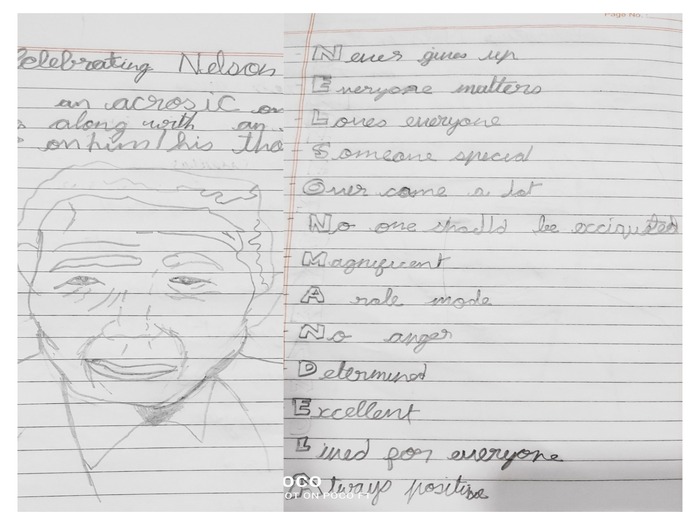 Page No.
Celebrating Nelson
an acrosic on
along with an
on him/his tho
Never gives up
Everyone matters
Loves everyone
Someone special
Over came a lot
No one should be
Magnificent
A role mode
No anger
Determined
Excellent
Lived for everyone
Always positive
OCO
OT ON POCO